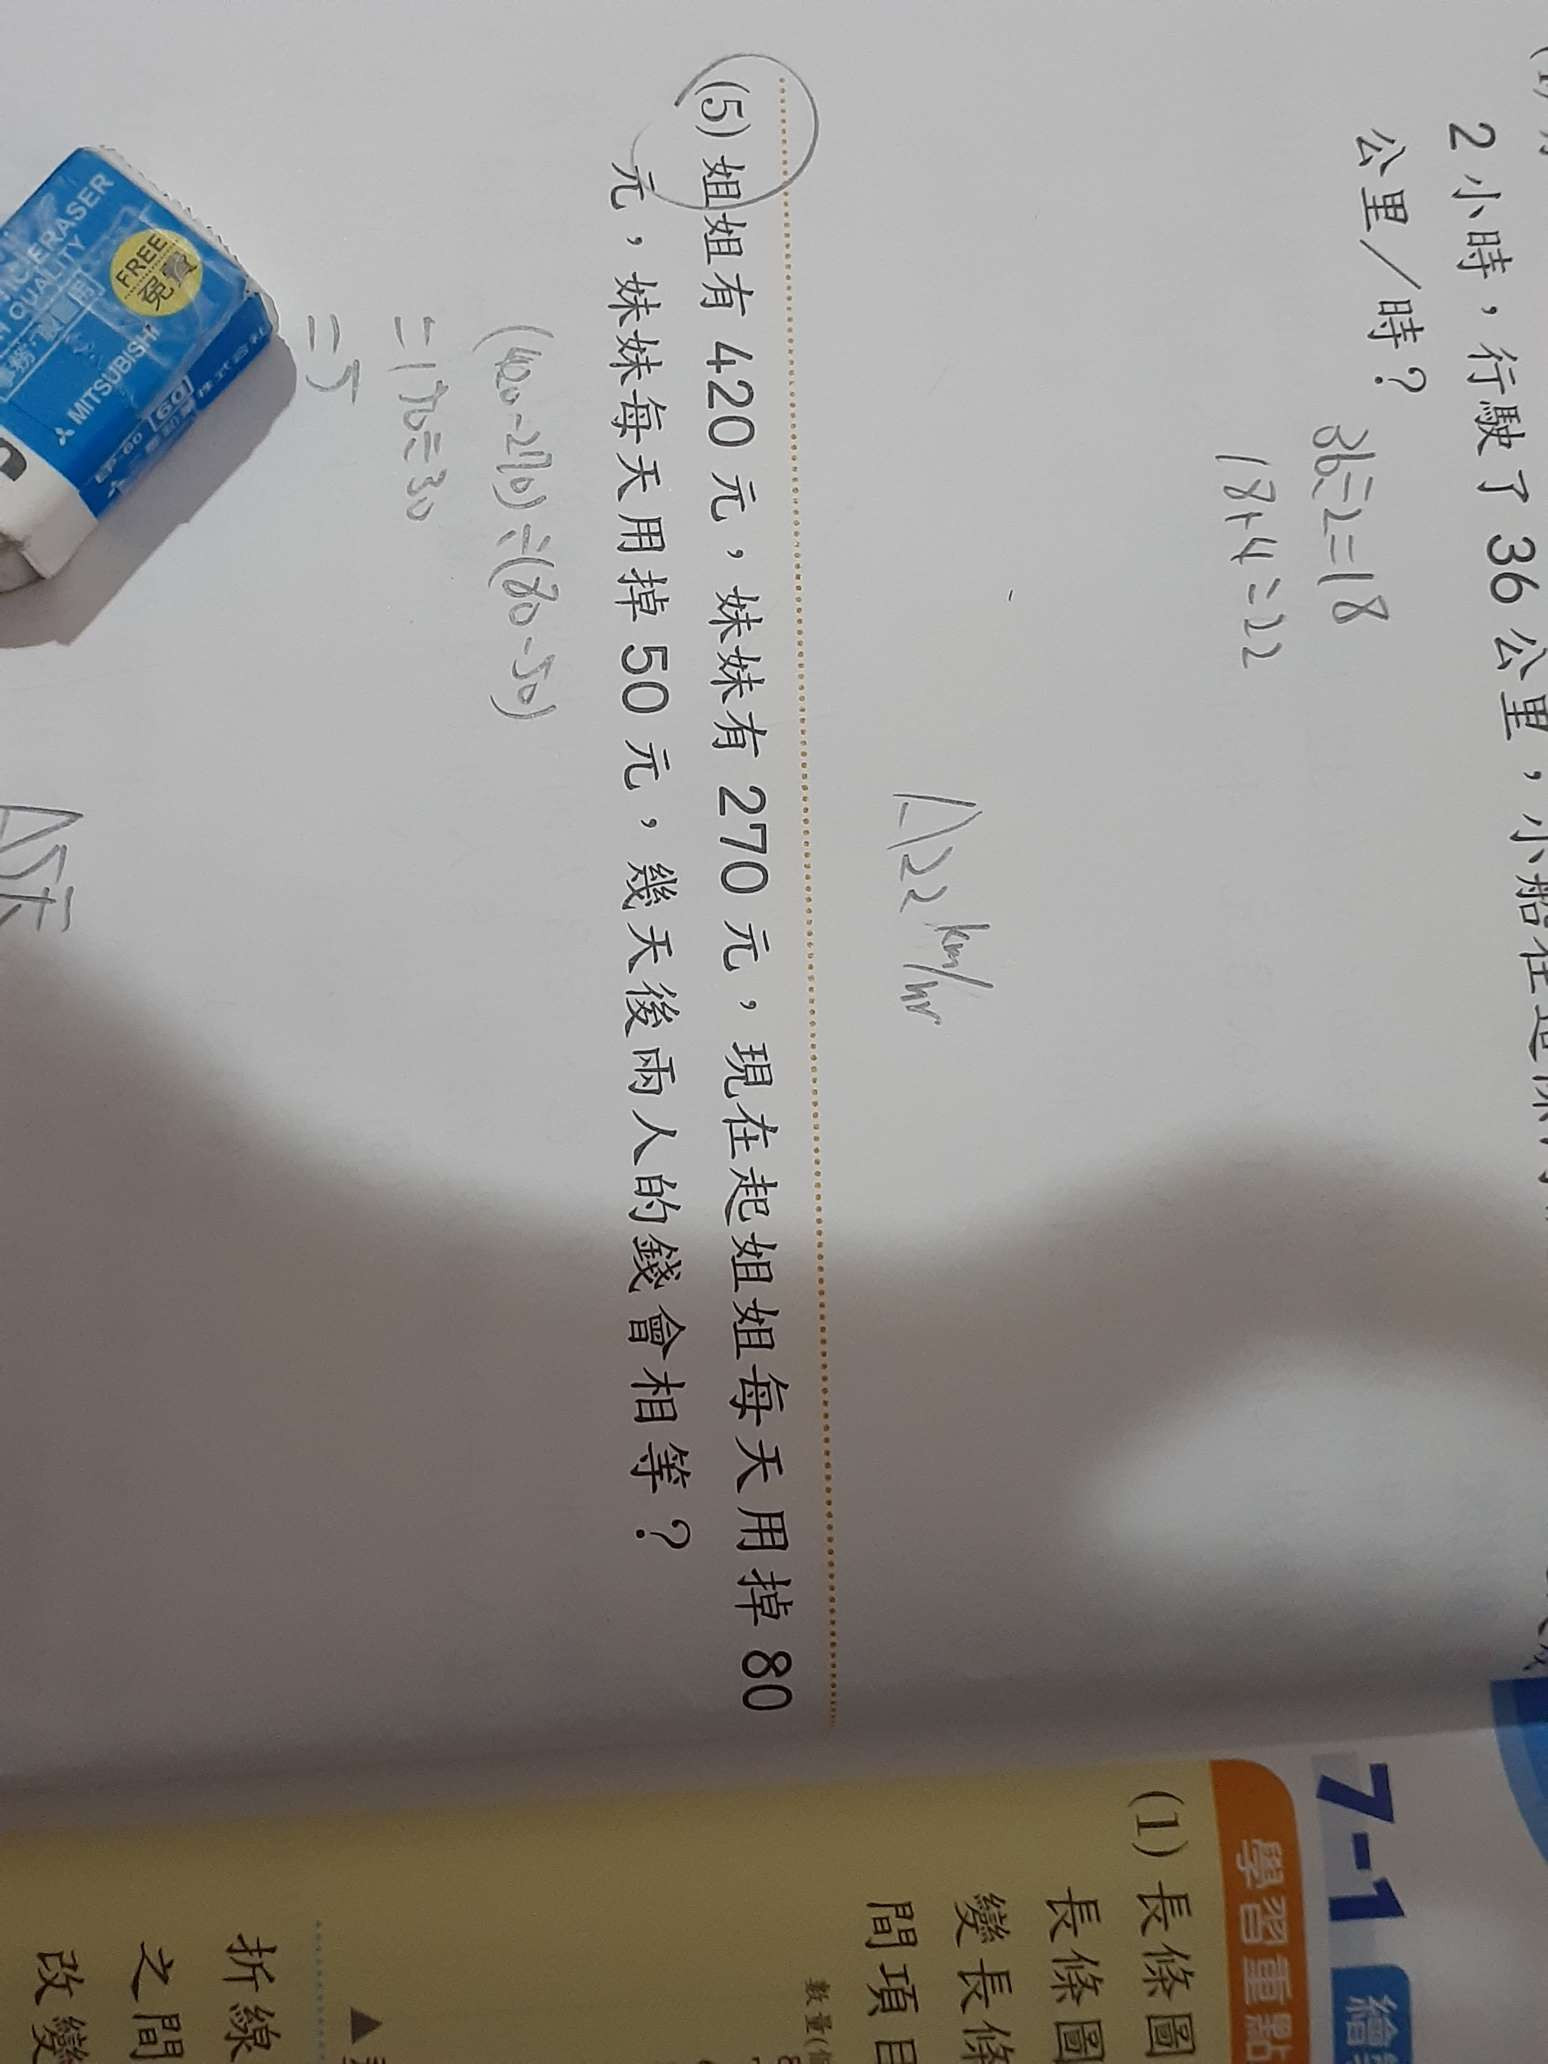 2小時，行駛了36公里，小船在
公里／時？
36÷2=18
18+4=22
A)22 km/hr
(5)姐姐有420元，妹妹有270元，現在起姐姐每天用掉80
元，妹妹每天用掉50元，幾天後兩人的錢會相等？
(420-270)÷(80-50)
=150÷30
=5
A)5天
ERASER
QUALITY
FREE
免費
MITSUBISHI
EP-60
60
株式会社
7-1
學習重點
(1)長條圖
長條圖
變長條
間項目
數量(個
折線
之間
改變